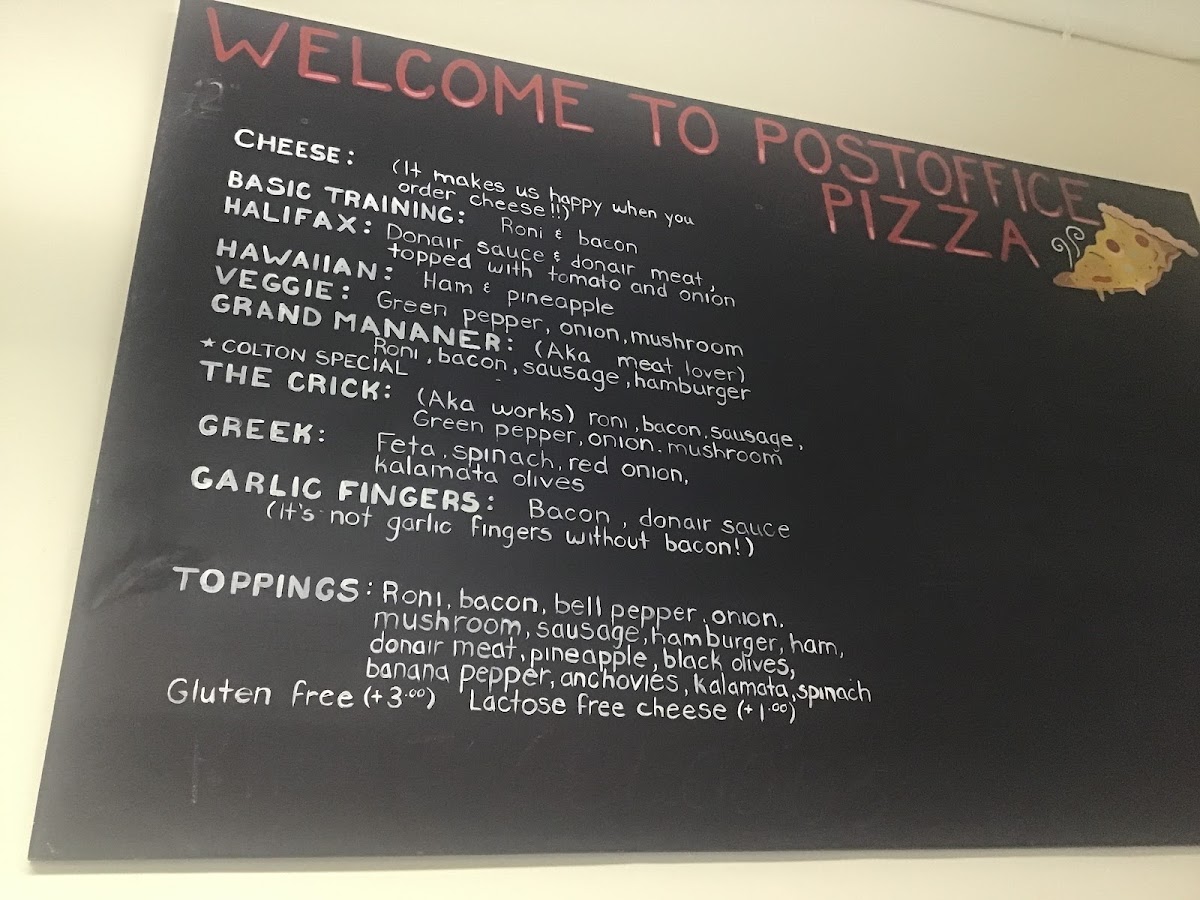 WELCOME TO POSTOFFICE
PIZZA
CHEESE: (It makes us happy when you
order cheese!!)
BASIC TRAINING: Roni & bacon
HALIFAX: Donair sauce & donair meat,
topped with tomato and onion
HAWAIIAN: Ham & pineapple
VEGGIE: Green pepper, onion, mushroom
GRAND MANANER: (Aka meat lover)
Roni, bacon, sausage, hamburger
* COLTON SPECIAL
THE CRICK: (Aka works) roni, bacon, sausage,
Green pepper, onion, mushroom
GREEK: Feta, spinach, red onion,
kalamata olives
GARLIC FINGERS: Bacon, donair sauce
(It's not garlic fingers without bacon!)
TOPPINGS: Roni, bacon, bell pepper, onion,
mushroom, sausage, hamburger, ham,
donair meat, pineapple, black olives,
banana pepper, anchovies, kalamata, spinach
Gluten free (+3.00) Lactose free cheese (+1.00)